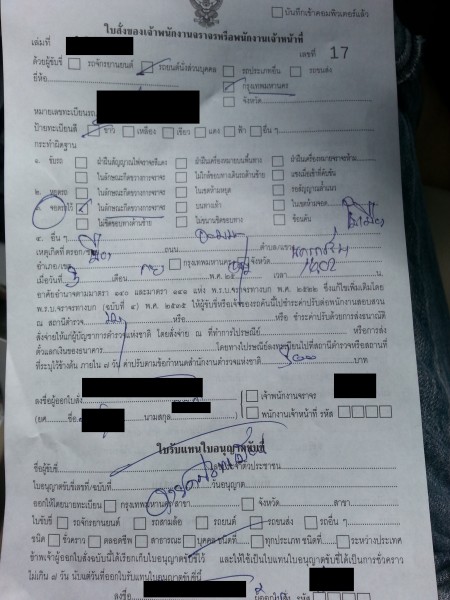 บันทึกเข้าคอมพิวเตอร์แล้ว
ใบสั่งของเจ้าพนักงานจราจรหรือพนักงานเจ้าหน้าที่
เล่มที่ เลขที่ 17
ด้วยผู้ขับขี่ รถจักรยานยนต์ รถยนต์นั่งส่วนบุคคล รถประเภทอื่น รถขนส่ง
ยี่ห้อ กรุงเทพมหานคร
จังหวัด
หมายเลขทะเบียนรถ
ป้ายทะเบียนสี ขาว เหลือง เขียว แดง ฟ้า อื่น ๆ
กระทำผิดฐาน
๑. ขับรถ ฝ่าฝืนสัญญาณไฟจราจรสีแดง ฝ่าฝืนเครื่องหมายบนพื้นทาง ฝ่าฝืนเครื่องหมายจราจรห้าม
ในลักษณะกีดขวางการจราจร ไม่ใกล้ขอบทางเดินรถด้านซ้าย แซงเมื่อเข้าที่คับขัน
๒. หยุดรถ ในลักษณะกีดขวางการจราจร ในเขตห้ามหยุด
๓. จอดรถไว้ ในลักษณะกีดขวางการจราจร บนทางเท้า ในเขตห้ามจอด
ไม่ชิดขอบทางด้านซ้าย ไม่ขนานชิดขอบทาง ซ้อนคัน
๔. อื่น ๆ
เหตุเกิดที่ ตรอก/ซอย ถนน ตำบล/แขวง
อำเภอ/เขต กรุงเทพมหานคร จังหวัด
เมื่อวันที่ 3 เดือน พ.ศ. ๒๕ เวลา น.
อาศัยอำนาจตามมาตรา ๑๔๐ และมาตรา ๑๔๑ แห่ง พ.ร.บ.จราจรทางบก พ.ศ. ๒๕๒๒ ซึ่งแก้ไขเพิ่มเติมโดย
พ.ร.บ.จราจรทางบก (ฉบับที่ ๔) พ.ศ. ๒๕๓๕ ให้ผู้ขับขี่หรือเจ้าของรถคันนี้ไปชำระค่าปรับต่อพนักงานสอบสวน
ณ สถานีตำรวจ หรือ หรือ ชำระค่าปรับด้วยการส่งธนาณัติ
สั่งจ่ายให้แก่ผู้บัญชาการตำรวจแห่งชาติ โดยสั่งจ่าย ณ ที่ทำการไปรษณีย์ หรือการส่ง
ตั๋วแลกเงินของธนาคาร โดยทางไปรษณีย์ลงทะเบียนไปที่สถานีตำรวจหรือสถานที่
ที่ระบุไว้ข้างต้น ภายใน ๗ วัน ค่าปรับตามข้อกำหนดสำนักงานตำรวจแห่งชาติ บาท
ลงชื่อผู้ออกใบสั่ง เจ้าพนักงานจราจร
(ยศ ชื่อ นามสกุล ) พนักงานเจ้าหน้าที่ รหัส
ใบรับแทนใบอนุญาตขับขี่
ชื่อผู้ขับขี่ ประชาชน
ใบอนุญาตขับขี่เลขที่/ฉบับที่ วันอนุญาต
ออกให้โดยนายทะเบียน กรุงเทพมหานคร สาขา จังหวัด สาขา
ใบขับขี่ รถจักรยานยนต์ รถสามล้อ รถยนต์ รถขนส่ง รถอื่น ๆ
ชนิด ชั่วคราว ตลอดชีพ สาธารณะ บุคคล ชนิดที่ ทุกประเภท ชนิดที่ ระหว่างประเทศ
ข้าพเจ้าผู้ออกใบสั่งฉบับนี้ได้เรียกเก็บใบอนุญาตขับขี่ไว้ และให้ใช้เป็นใบแทนใบอนุญาตขับขี่ได้เป็นการชั่วคราว
ไม่เกิน ๗ วัน นับแต่วันที่ออกใบรับแทนใบอนุญาตขับขี่นี้
ลงชื่อ ผู้ออกใบสั่ง รหัส